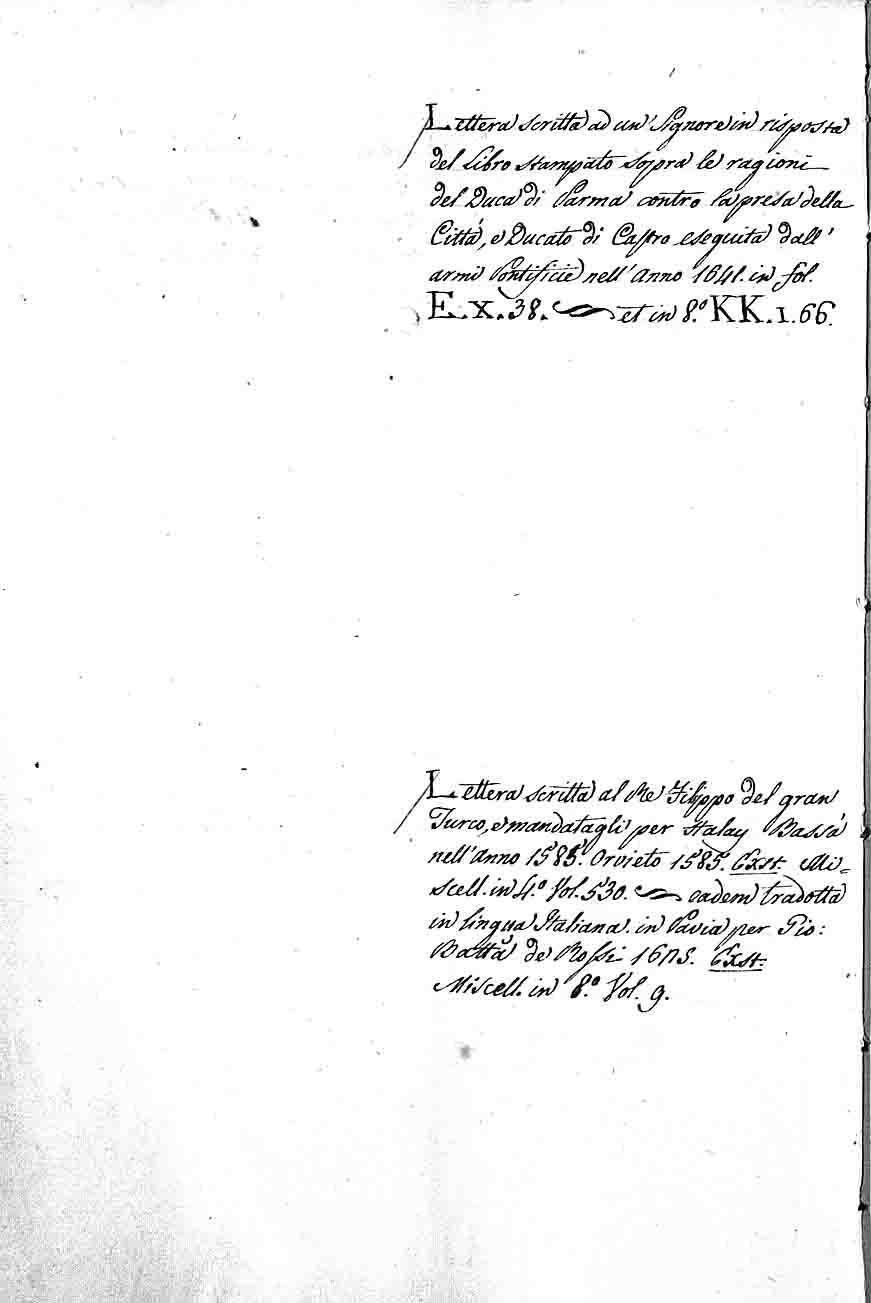 Lettera scritta ad un' Signore in risposta
del Libro stampato sopra le ragioni
del Duca di Parma contro la presa della
Cittá, e Ducato di Castro eseguita dall'
armi Pontificie nell' Anno 1641. in fol.
E. X. 38. et in 8.º KK. 1. 66.
Lettera scritta al Re Filippo del gran
Turco, e mandatagli per Stalay Bassá
nell' Anno 1585. Orvieto 1585. Exst. Mi=
scell. in 4.º Vol. 530. eadem tradotta
in lingua Italiana. in Pavia per Gio:
Batta de Rossi
Miscell. in 8.º Vol. 9.